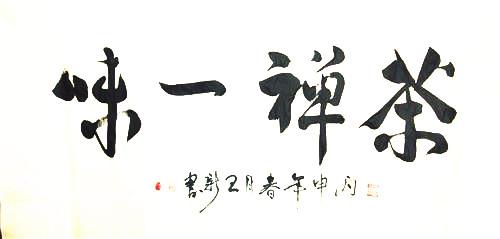 茶禅一味
丙申年春月王新書